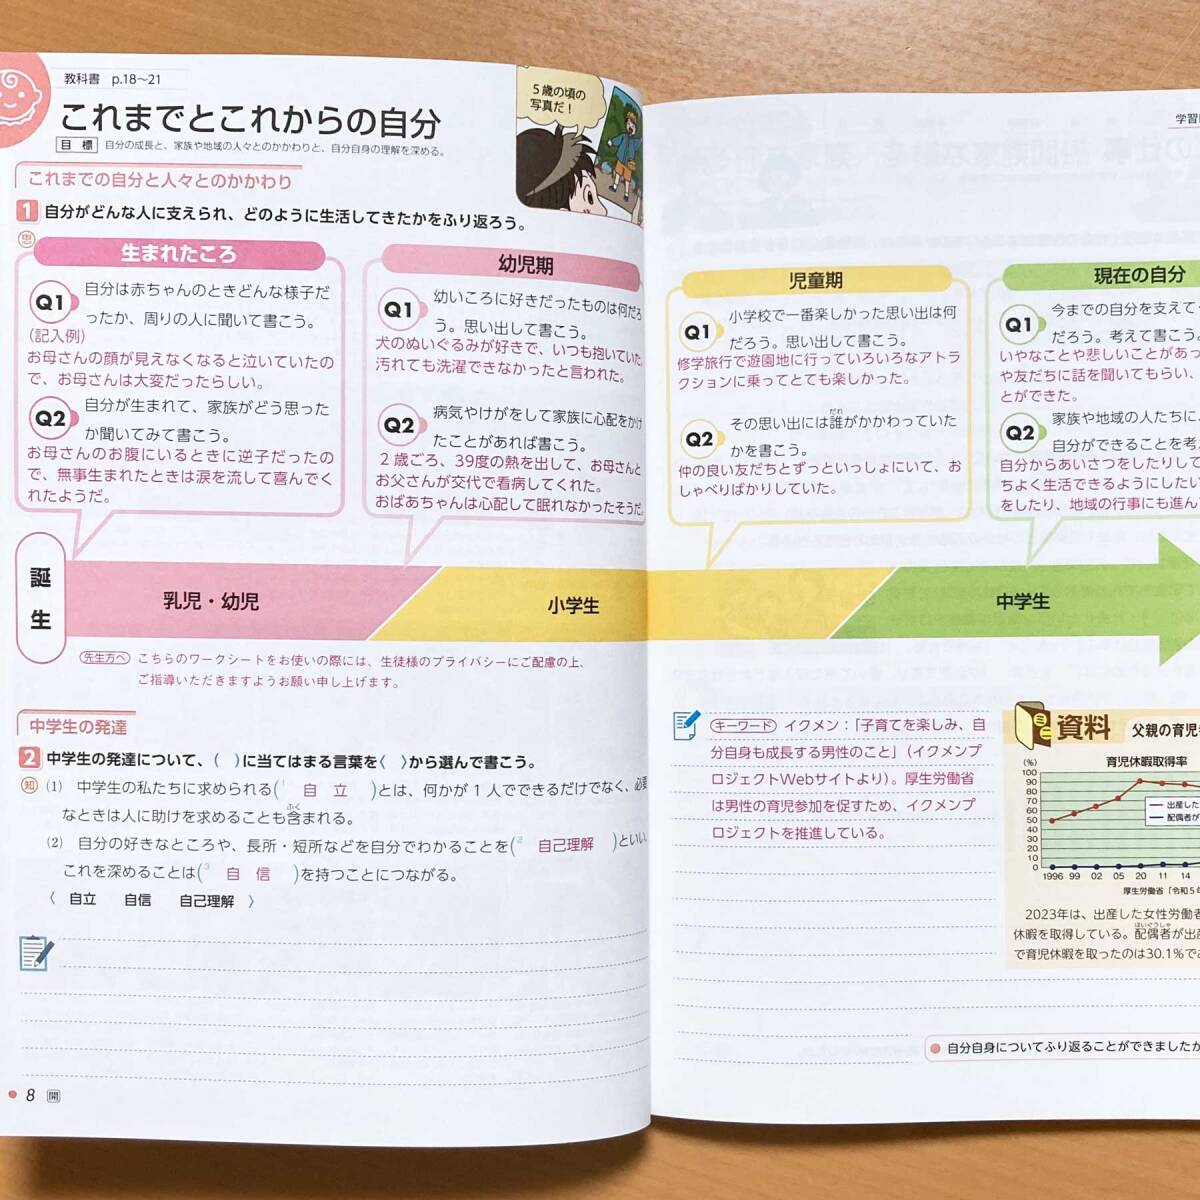 教科書 p.18〜21
これまでとこれからの自分
目標 自分の成長と、家族や地域の人々とのかかわりと、自分自身の理解を深める。
5歳の頃の
写真だ！
これまでの自分と人々とのかかわり
1 自分がどんな人に支えられ、どのように生活してきたかをふり返ろう。
思
生まれたころ
Q1 自分は赤ちゃんのときどんな様子だ
ったか、周りの人に聞いて書こう。
(記入例)
お母さんの顔が見えなくなると泣いていたの
で、お母さんは大変だったらしい。
Q2 自分が生まれて、家族がどう思った
か聞いてみて書こう。
お母さんのお腹にいるときに逆子だったの
で、無事生まれたときは涙を流して喜んでく
れたようだ。
幼児期
Q1 幼いころに好きだったものは何だろ
う。思い出して書こう。
犬のぬいぐるみが好きで、いつも抱いていた。
汚れても洗濯できなかったと言われた。
Q2 病気やけがをして家族に心配をかけ
たことがあれば書こう。
2歳ごろ、39度の熱を出して、お母さんと
お父さんが交代で看病してくれた。
おばあちゃんは心配して眠れなかったそうだ。
誕生
乳児・幼児
小学生
先生方へ こちらのワークシートをお使いの際には、生徒様のプライバシーにご配慮の上、
ご指導いただきますようお願い申し上げます。
中学生の発達
2 中学生の発達について、( )に当てはまる言葉を〈 〉から選んで書こう。
知
(1) 中学生の私たちに求められる(1 自 立 )とは、何かが1人でできるだけでなく、必要
なときは人に助けを求めることも含まれる。
ふく
(2) 自分の好きなところや、長所・短所などを自分でわかることを(2 自己理解 )といい、
これを深めることは(3 自 信 )を持つことにつながる。
〈 自立 自信 自己理解 〉
8 開
学習
児童期
Q1 小学校で一番楽しかった思い出は何
だろう。思い出して書こう。
修学旅行で遊園地に行っていろいろなアトラ
クションに乗ってとても楽しかった。
Q2 その思い出には誰がかかわっていた
だれ
かを書こう。
仲の良い友だちとずっといっしょにいて、お
しゃべりばかりしていた。
現在の自分
Q1 今までの自分を支えて
だろう。考えて書こう。
いやなことや悲しいことがあっ
や友だちに話を聞いてもらい、
とができた。
Q2 家族や地域の人たちに、
自分ができることを考
自分からあいさつをしたりして
ちよく生活できるようにしたい
をしたり、地域の行事にも進ん
中学生
キーワード イクメン：「子育てを楽しみ、自
分自身も成長する男性のこと」（イクメンプ
ロジェクトWebサイトより）。厚生労働省
は男性の育児参加を促すため、イクメンプ
ロジェクトを推進している。
自己
資料 父親の育児
育児休暇取得率
(%)
100
90
80
70
60
50
40
30
20
10
0
1996 99 02 05 20 11 14
出産した
配偶者が
厚生労働省「令和5年
2023年は、出産した女性労働者
休暇を取得している。配偶者が出産
はいぐうしゃ
で育児休暇を取ったのは30.1%で
自分自身についてふり返ることができましたか